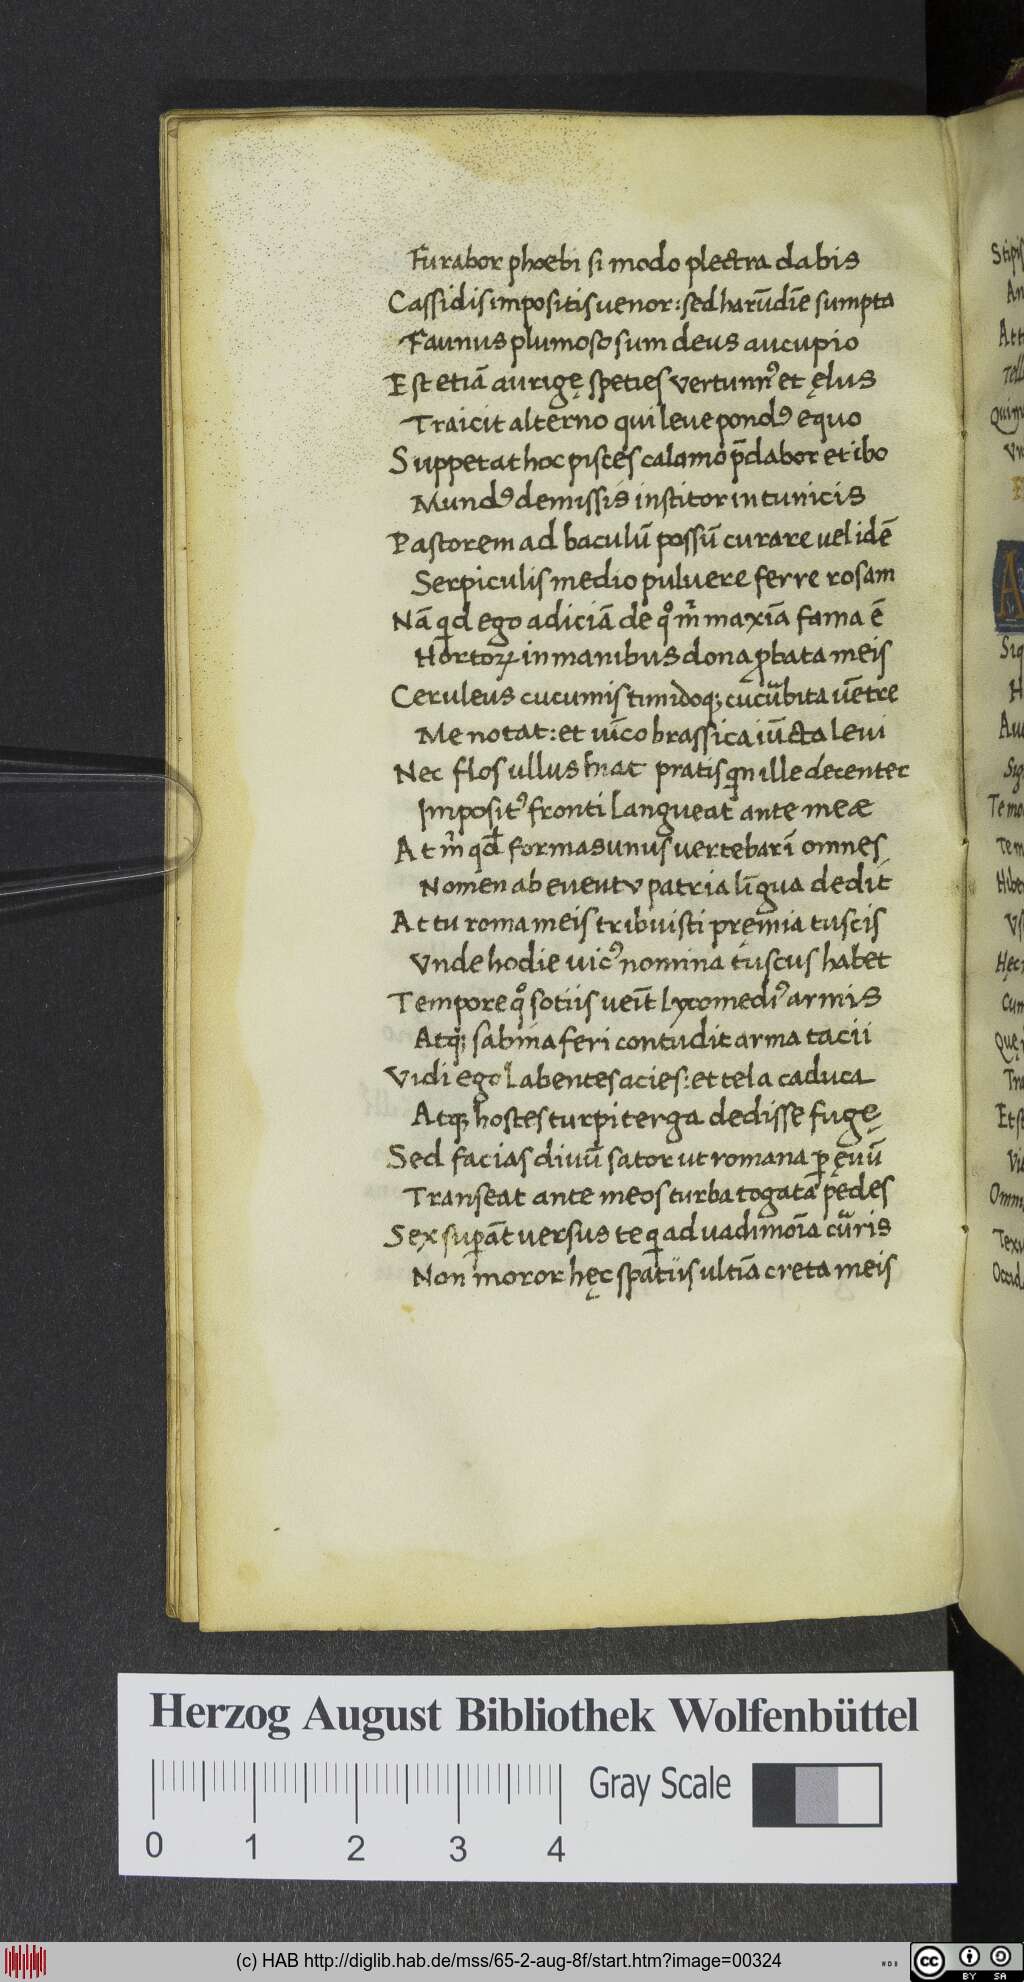 Furabor phoebi si modo plectra dabis
Cassidis impositis venor: sed harūdīe sumpta
Faunus plumoso sum deus aucupio
Est etiā aurigę speties vertumnꝰ et ęlus
Traicit alterno qui leve pondꝰ equo
Suppetat hoc pisces calamo p̄dabor et ibo
Mundꝰ demissis institor in tunicis
Pastorem ad baculū possū curare vel idē
Serpiculis medio pulvere ferre rosam
Nā qd ego adiciā de qͦ m̄ maxīa fama ē
Hortoꝝ in manibus dona ꝓbata meis
Ceruleus cucumis tumidoqꝫ cucūbita vētre
Me notat: et vīco brassica iūcta levi
Nec flos ullus hiat pratis qn ille decenter
Impositꝰ fronti langueat ante meæ
At m̄ qd formas unus vertebar ī omnes
Nomen ab eventu patria līgua dedit
At tu roma meis tribuisti pręmia tuscis
Vnde hodie vicꝰ nomina tuscus habet
Tempore qͦ sotiis veīt lycomediꝰ armis
Atqꝫ sabina feri contudit arma tacii
Vidi ego labentes acies: et tela caduca
Atqꝫ hostes turpi terga dedisse fugę
Sed facias divū sator ut romana ꝑ ęvū
Transeat ante meos turba togata pedes
Sex suꝑāt versus te q ad vadimoīa cūris
Non moror hęc spatiis ultīa creta meis
Herzog August Bibliothek Wolfenbüttel
Gray Scale
0 1 2 3 4
(c) HAB http://diglib.hab.de/mss/65-2-aug-8f/start.htm?image=00324
cc BY SA